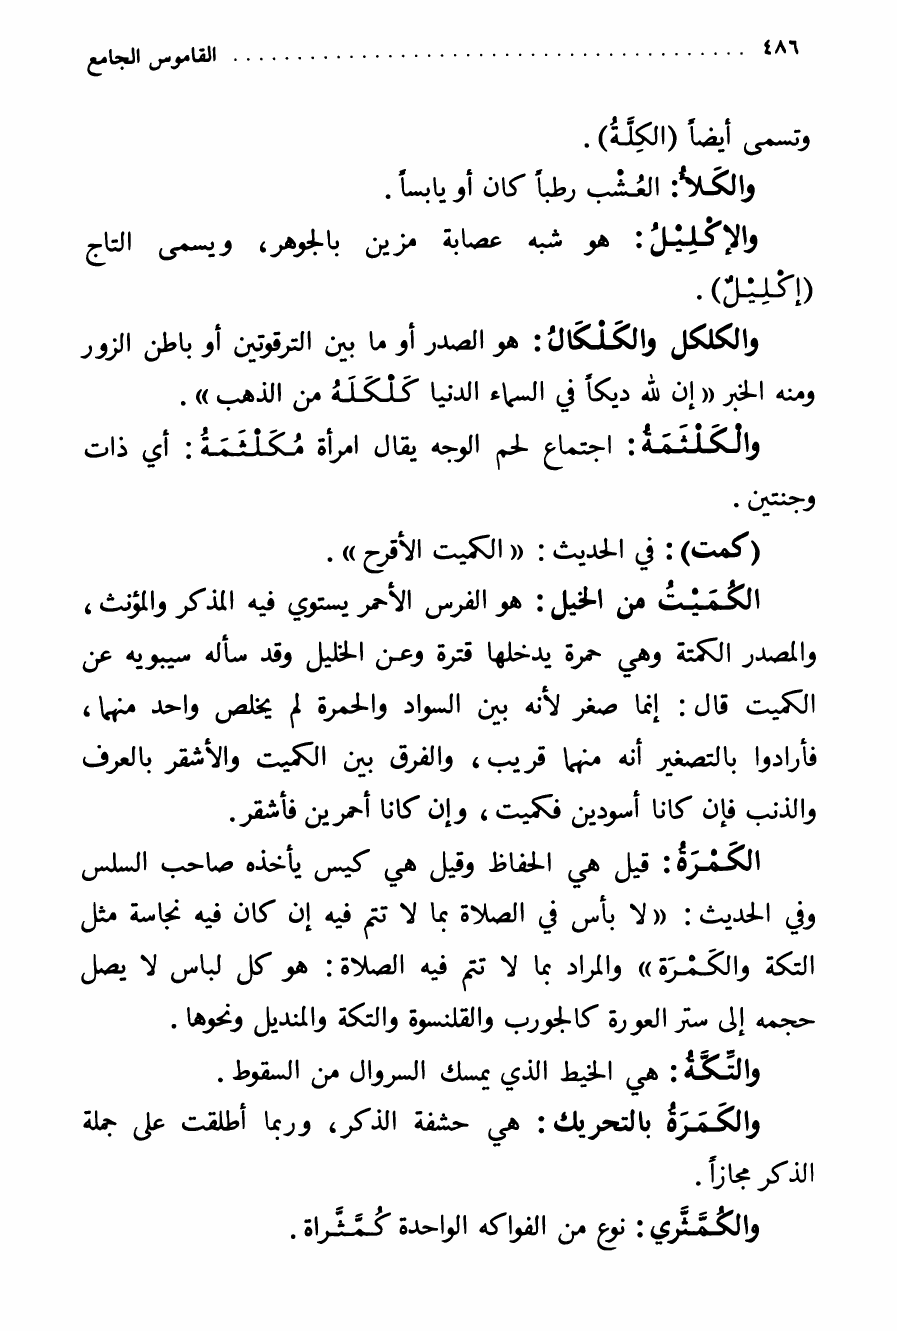 ٤٨٦ ........................................ القاموس الجامع
وتسمى أيضاً (الكِلَّةُ) .
والكَلأُ: العُشْب رطباً كان أو يابساً .
والإكْلِيْلُ: هو شبه عصابة مزين بالجوهر، ويسمى التاج
(إكْلِيْلٌ) .
والكلكل والكَلْكَالُ: هو الصدر أو ما بين الترقوتين أو باطن الزور
ومنه الخبر «إن لله ديكاً في السماء الدنيا كَلْكَلَهُ من الذهب» .
والْكَلْثَمَةُ: اجتماع لحم الوجه يقال امرأة مُكَلْثَمَةُ: أي ذات
وجنتين .
(كمت): في الحديث: «الكميت الأقرح» .
الكُمَيْتُ من الخيل: هو الفرس الأحمر يستوي فيه المذكر والمؤنث،
والمصدر الكمتة وهي حمرة يدخلها قترة وعن الخليل وقد سأله سيبويه عن
الكميت قال: إنما صغر لأنه بين السواد والحمرة لم يخلص واحد منهما،
فأرادوا بالتصغير أنه منهما قريب، والفرق بين الكميت والأشقر بالعرف
والذنب فإن كانا أسودين فكميت، وإن كانا أحمرين فأشقر.
الكَمْرَةُ: قيل هي الحفاظ وقيل هي كيس يأخذه صاحب السلس
وفي الحديث: «لا بأس في الصلاة بما لا تتم فيه إن كان فيه نجاسة مثل
التكة والكَمْرَة» والمراد بما لا تتم فيه الصلاة: هو كل لباس لا يصل
حجمه إلى ستر العورة كالجورب والقلنسوة والتكة والمنديل ونحوها .
والتِّكَّةُ: هي الخيط الذي يمسك السروال من السقوط .
والكَمَرَةُ بالتحريك: هي حشفة الذكر، وربما أطلقت على جملة
الذكر مجازاً .
والكُمَّثَّري: نوع من الفواكه الواحدة كُمَّثَّراة .